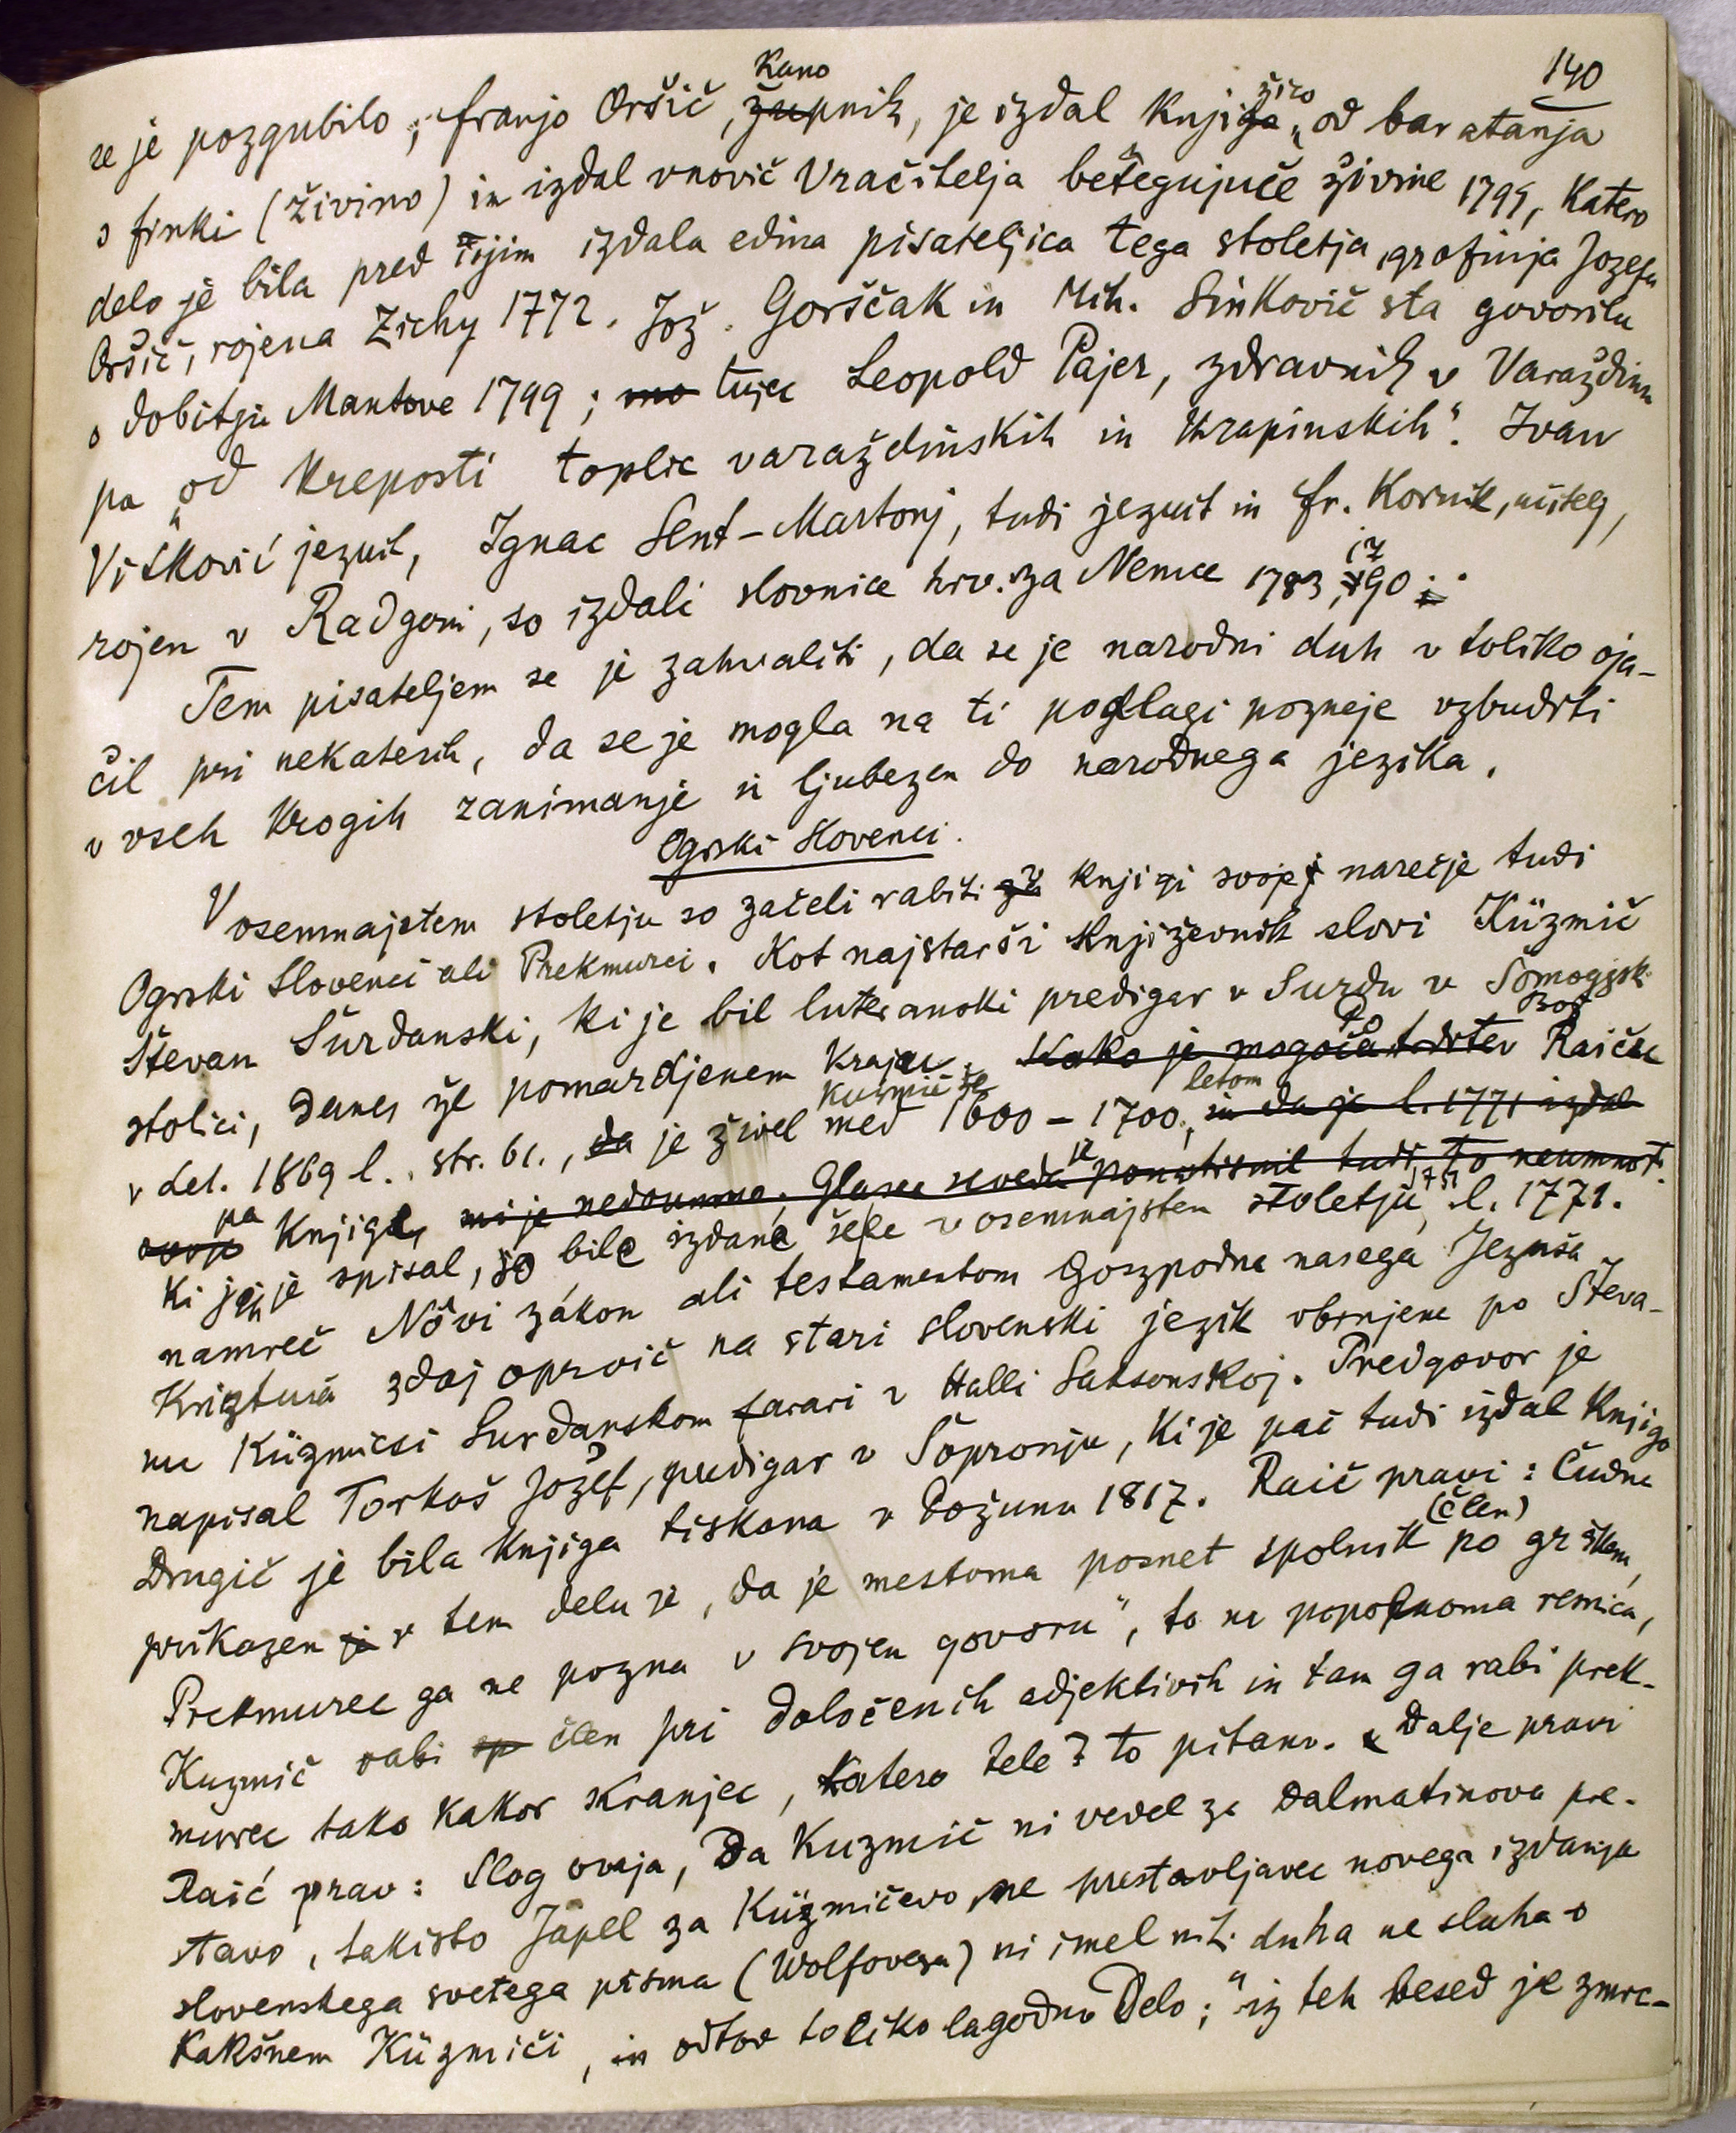 140
se je pozgubilo; franjo Oršič, Kano župnik, je izdal Knjižico „od baratanja
s finki (živino) in izdal vnovič Vračitelja betegujuče živine 1799, Katero
delo je bila pred tijim izdala edina pisateljica tega stoletja, grofinja Jozefa
Oršič, rojena Zichy 1772. Jož. Gorščak in Mih. Sinkovič sta govorila
o dobitju Mantove 1799; mo tujec Leopold Pajer, zdravnik v Varaždinu
pa „od Kreposti toplic varaždinskih in Krapinskih". Ivan
Vitković jezuit, Ignac Sent-Martonj, tudi jezuit in fr. Kornik, učitelj,
rojen v Radgoni, so izdali slovnice hrv. za Nemce 1783, 1790.
Tem pisateljem se je zahvaliti, da se je narodni duh v toliko oja-
čil pri nekaterih, da se je mogla na ti podlagi pozneje vzbuditi
v vseh Krogih zanimanje in ljubezen do narodnega jezika.
Ogrski Slovenci.
V osemnajstem stoletju so začeli rabiti za v Knjigi svoje narečje tudi
Ogrski Slovenci ali Prekmurci. Kot najstarši Književnik slovi Küzmič
Števan Šurdanski, ki je bil luteranski predigar v Surdu v Šomogjski
stolici, danes že pomardjenem Kraju. Kako je mogoča trditev Po Božj Raiču
v Let. 1869 l., str. 61., da je Kuzmič že živel med 1600 – 1700 letom, in da je l. 1771 izdal
svoje pa Knjige, mi je nedoumno. Glasec seveda je ponatisnil tudi to neumnost.
Ki jih je spisal, so bile izdane šele v osemnajstem stoletju, 1751 l. 1771.
namreč Nôvi zákon ali testamentom Goszpodna nasega Jezusa
Krisztusa zdaj oprvič na stari slovenski jezik obrnjene po Števa-
nu Küzmicsi Surdanskom farari v Halli Saksonskoj. Predgovor je
napisal Torkoš Jožef, predigar v Šopronju, Ki je pač tudi izdal Knjigo
Drugič je bila Knjiga tiskana v Požunu 1817. Raič pravi: Čudna
prikazen je v tem delu je, da je mestoma posnet spolnik (člen) po grškem,
Prekmurec ga ne pozna v svojem govoru", to ne popolnoma resnica,
Kuzmič rabi sp člen pri določenih adjektivih in tam ga rabi prek-
murec tako Kakor Kranjec, Katero tele? to pitano. „Dalje pravi
Raić prav: Slog ovaja, Da Kuzmič ni vedel za Dalmatinova pre-
stavo, takisto Japel za Küzmičevo, ne prestavljavec novega izdanja
slovenskega svetega pisma (Wolfovega) ni imel niti duha ne sluha o
Kakšnem Küzmiči, in odtod toliko lagodno Delo;" iz teh besed je zmre-